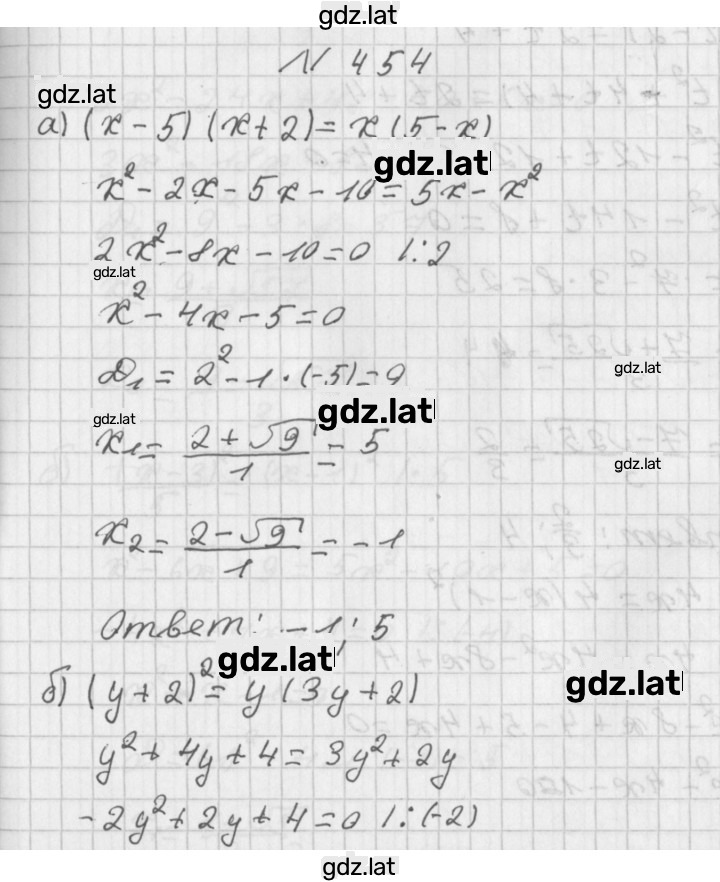 gdz.lat
N 454
gdz.lat
а) (x - 5) (x + 2) = x (5 - x)
gdz.lat
x² - 2x - 5x - 10 = 5x - x²
2x² - 8x - 10 = 0 |:2
gdz.lat
x² - 4x - 5 = 0
D₁ = 2² - 1 · (-5) = 9
gdz.lat
gdz.lat
gdz.lat
x₁ = (2 + √9)/1 = 5
gdz.lat
x₂ = (2 - √9)/1 = -1
Ответ: -1; 5
gdz.lat
gdz.lat
б) (y + 2)² = y (3y + 2)
y² + 4y + 4 = 3y² + 2y
-2y² + 2y + 4 = 0 |:(-2)
gdz.lat